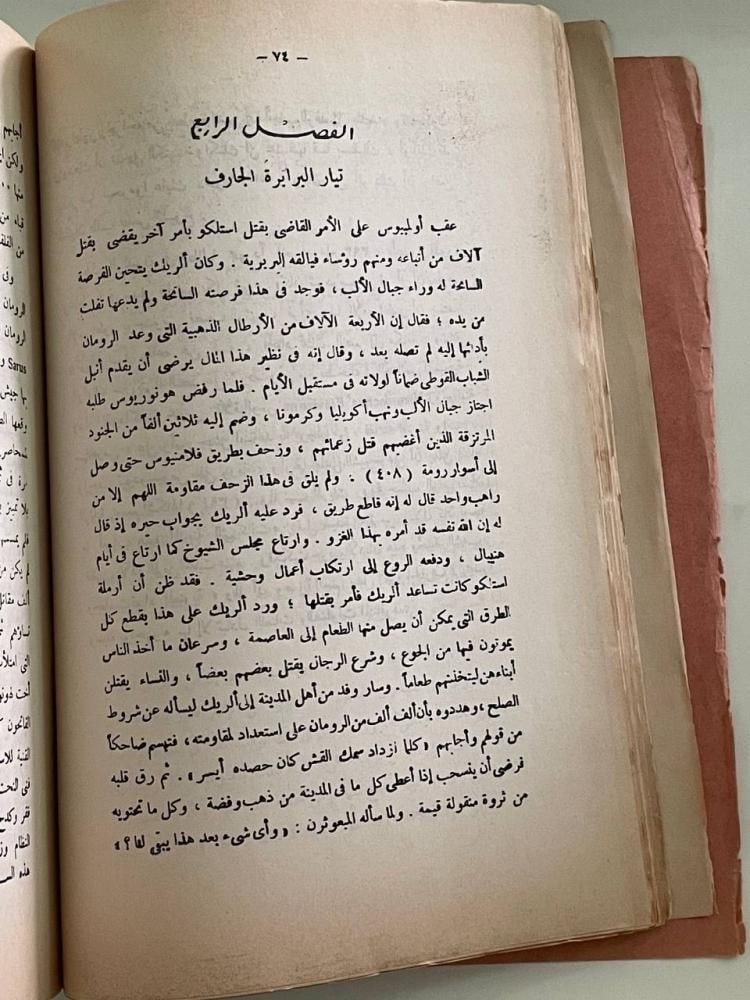 — ٧٤ —
الفصل الرابع
تيار البرابرة الجارف
عقب أولمبيوس على الأمر القاضى بقتل استلكو بأمر آخر يقضى بقتل
آلاف من أتباعه ومنهم رؤساء فيالقه البربرية . وكان ألريك يتحين الفرصة
السانحة له وراء جبال الألب ، فوجد فى هذا فرصته السانحة ولم يدعها تفلت
من يده ؛ فقال إن الأربعة الآلاف من الأرطال الذهبية التى وعد الرومان
بأدائها إليه لم تصله بعد ، وقال إنه فى نظير هذا المال يرضى أن يقدم أنبل
الشباب القوطى ضماناً لولائه فى مستقبل الأيام . فلما رفض هونوريوس طلبه
اجتاز جبال الألب ونهب أكويليا وكرمونا ، وضم إليه ثلاثين ألفاً من الجنود
المرتزقة الذين أغضبهم قتل زعمائهم ، وزحف بطريق فلامنيوس حتى وصل
إلى أسوار رومة ( ٤٠٨ ) . ولم يلق فى هذا الزحف مقاومة اللهم إلا من
راهب واحد قال له إنه قاطع طريق ، فرد عليه ألريك بجواب حيره إذ قال
له إن الله نفسه قد أمره بهذا الغزو . وارتاع مجلس الشيوخ كما ارتاع فى أيام
هنيبال ، ودفعه الروع إلى ارتكاب أعمال وحشية . فقد ظن أن أرملة
استلكو كانت تساعد ألريك فأمر بقتلها ؛ ورد ألريك على هذا بقطع كل
الطرق التى يمكن أن يصل منها الطعام إلى العاصمة ، وسرعان ما أخذ الناس
يموتون فيها من الجوع ، وشرع الرجال يقتل بعضهم بعضاً ، والنساء يقتلن
أبناءهن ليتخذنهم طعاماً . وسار وفد من أهل المدينة إلى ألريك ليسأله عن شروط
الصلح ، وهددوه بأن ألف ألف من الرومان على استعداد لمقاومته ، فتبسم ضاحكاً
من قولهم وأجابهم « كلما ازداد سمك القش كان حصده أيسر » . ثم رق قلبه
فرضى أن ينسحب إذا أعطى كل ما فى المدينة من ذهب وفضة ، وكل ما تحتويه
من ثروة منقولة قيمة . ولما سأله المبعوثون : « وأى شىء بعد هذا يبقى لنا ؟ »
أجابهم
Sarus